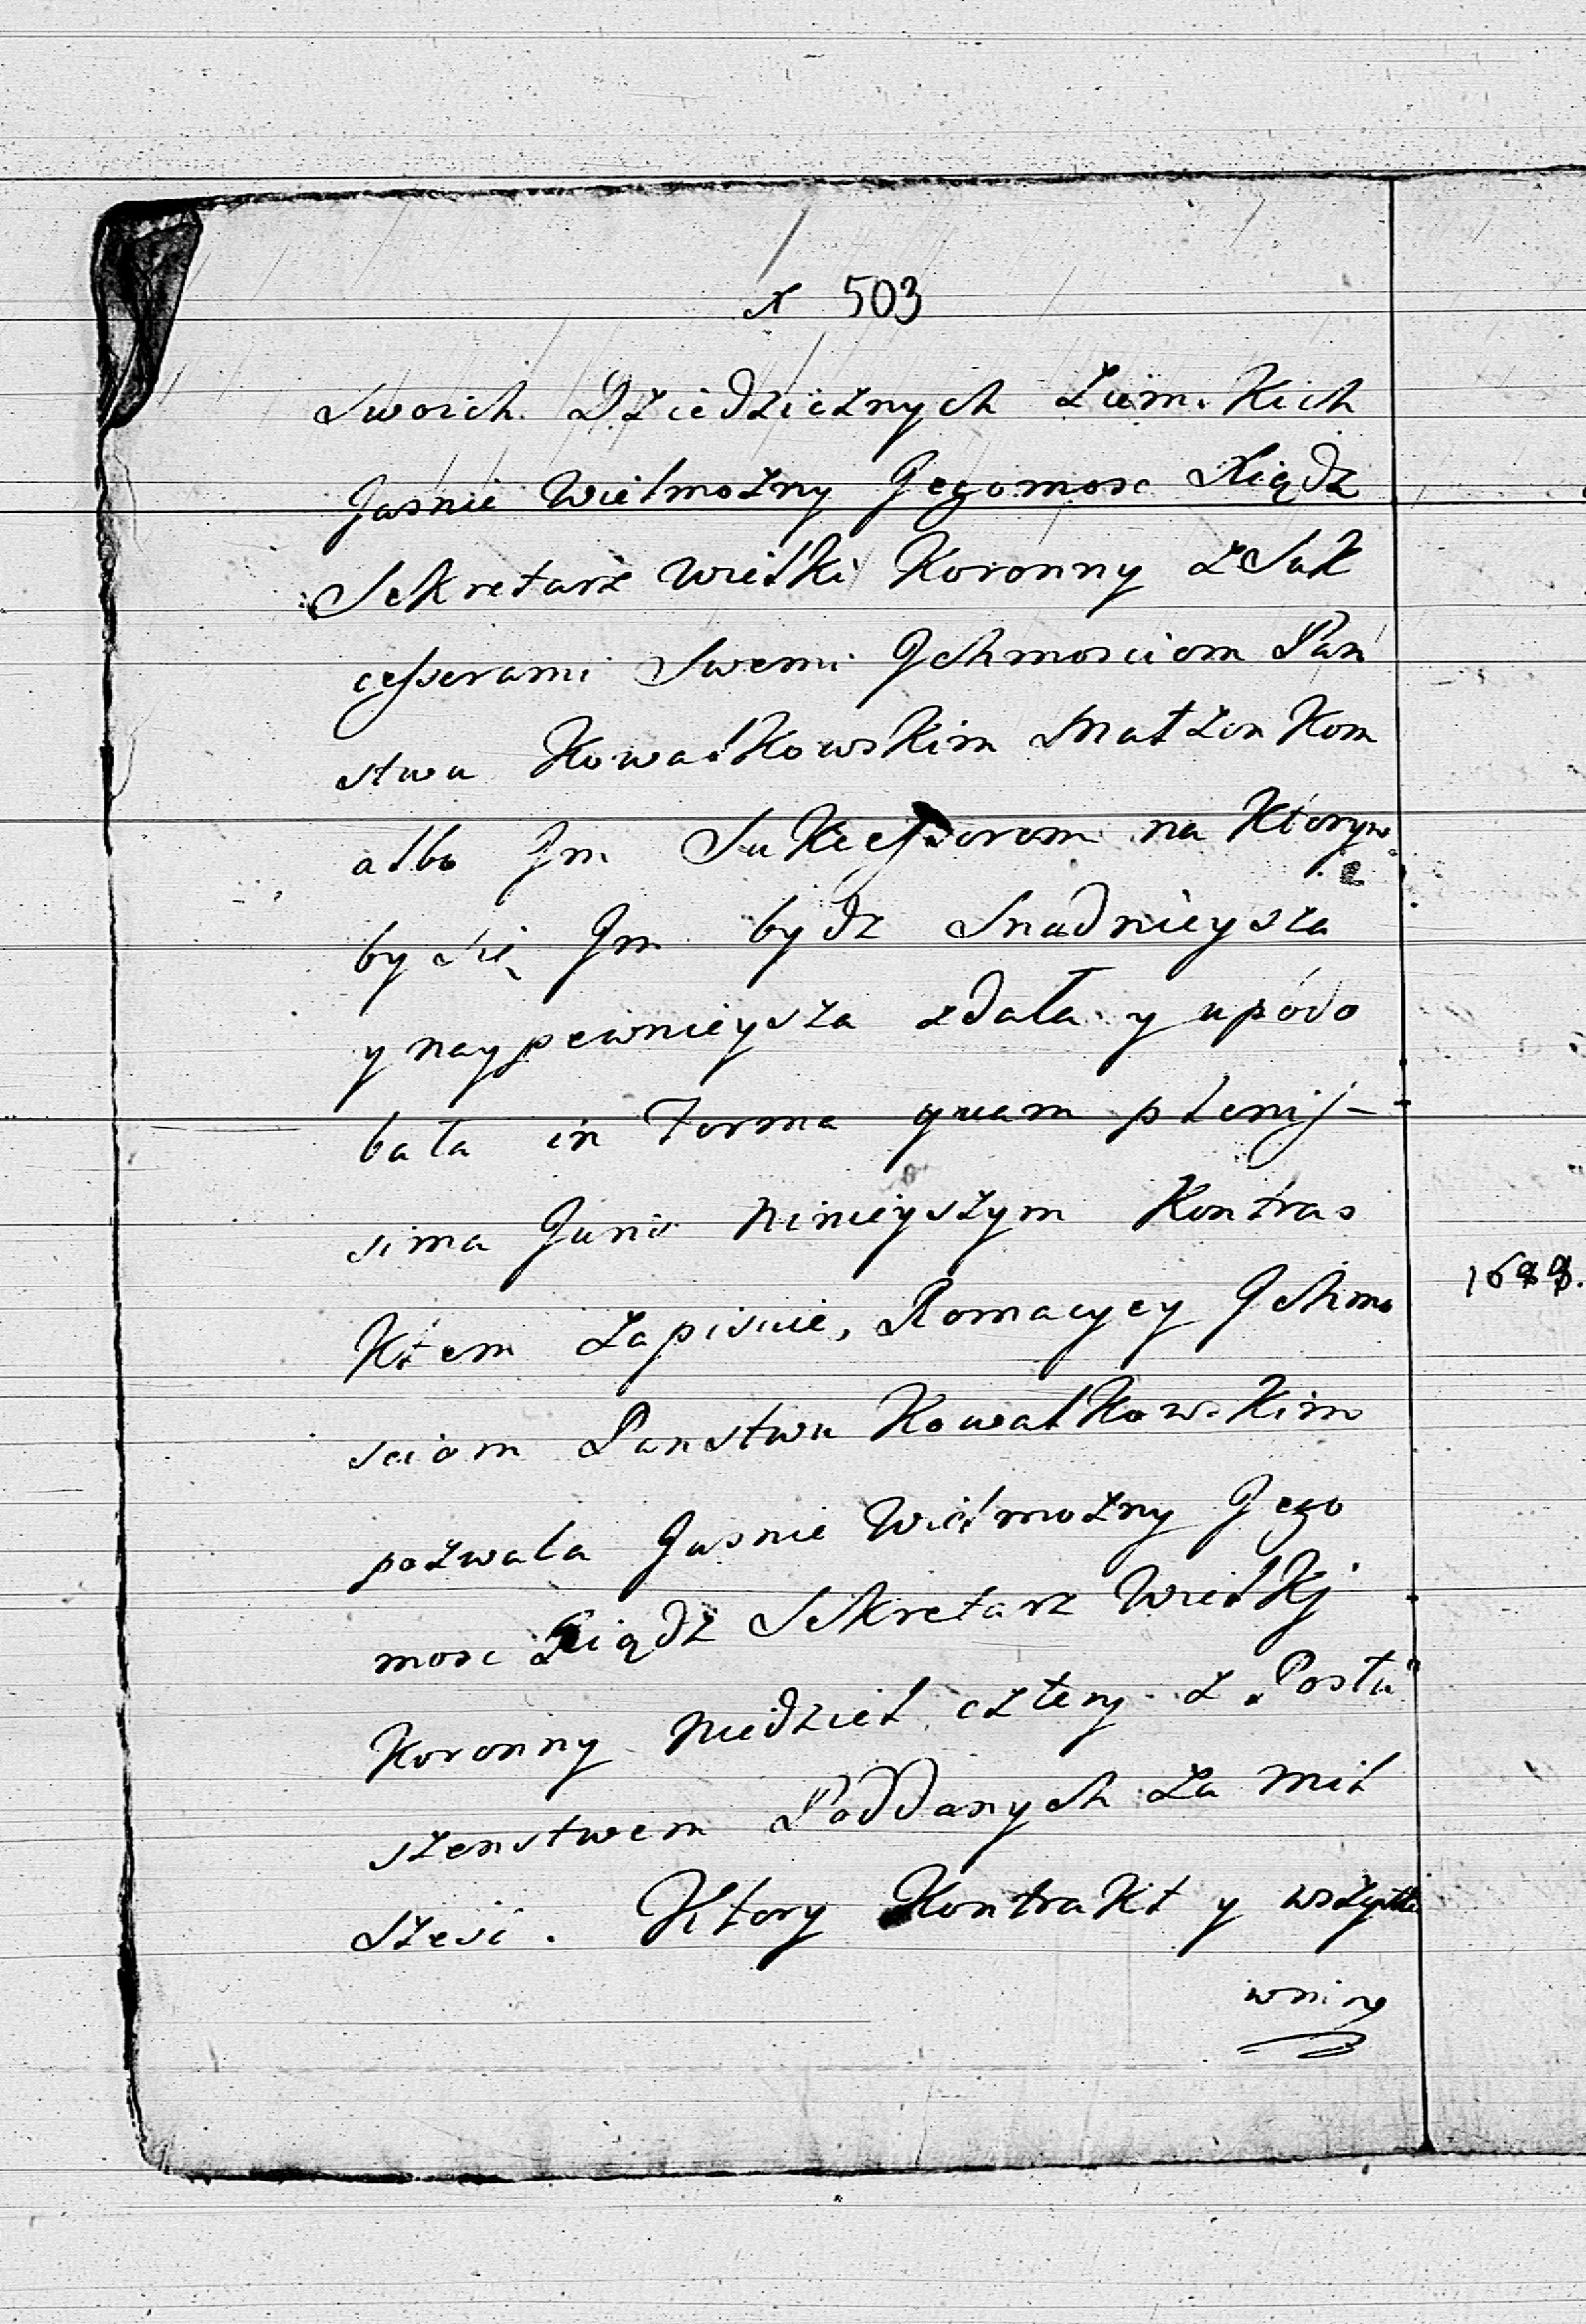 x 503
Swoich Dziedzicznych Ziem.kich
Jasnie Wielmożny Jegomosc Xiądz
Sekretarz Wielki Koronny z Suk
cessorami Swemi Jchmosciom Pań
stwu Kowalkowskim Małżonkom
albo Jm Sukcessorom na ktoryw
by się Jm bydz Snadnieysza
y naypewnieysza zdała y upodo
bała in Forma quam plenij-
sima Junis Ninieyszym Kontras
ktem zapisuie, Romacyey Jchmo
sciom Panstwu Kowalkowskim
pozwala Jasnie Wielmożny Jego
mosc Xiądz Sekretarz Wielkj
Koronny Niedziel cztery z Posłu
szenstwem Poddanych za Mil
szesc. Ktory Kontrakt y wszytkie
1688.